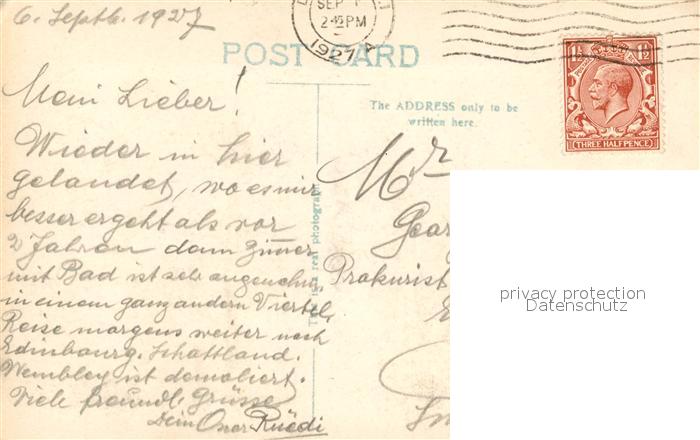 6. Septb. 1927
SEP
2 45 PM
1927 A
POST CARD
1½ 1½
THREE HALFPENCE
The ADDRESS only to be
written here.
This is a real photograph.
Mein Lieber!
Wieder in hier
gelandet, wo es mir
besser ergeht als vor
2 Jahren dann Zimmer
mit Bad ist sehr angenehm
in einem ganz andern Viertel,
Reise morgens weiter nach
Edinbourg. Schattland.
Wembley ist demoliert.
Viele freundl. Grüsse
Dein Rüedi
Mr
Geor
Prokurist
privacy protection
Datenschutz